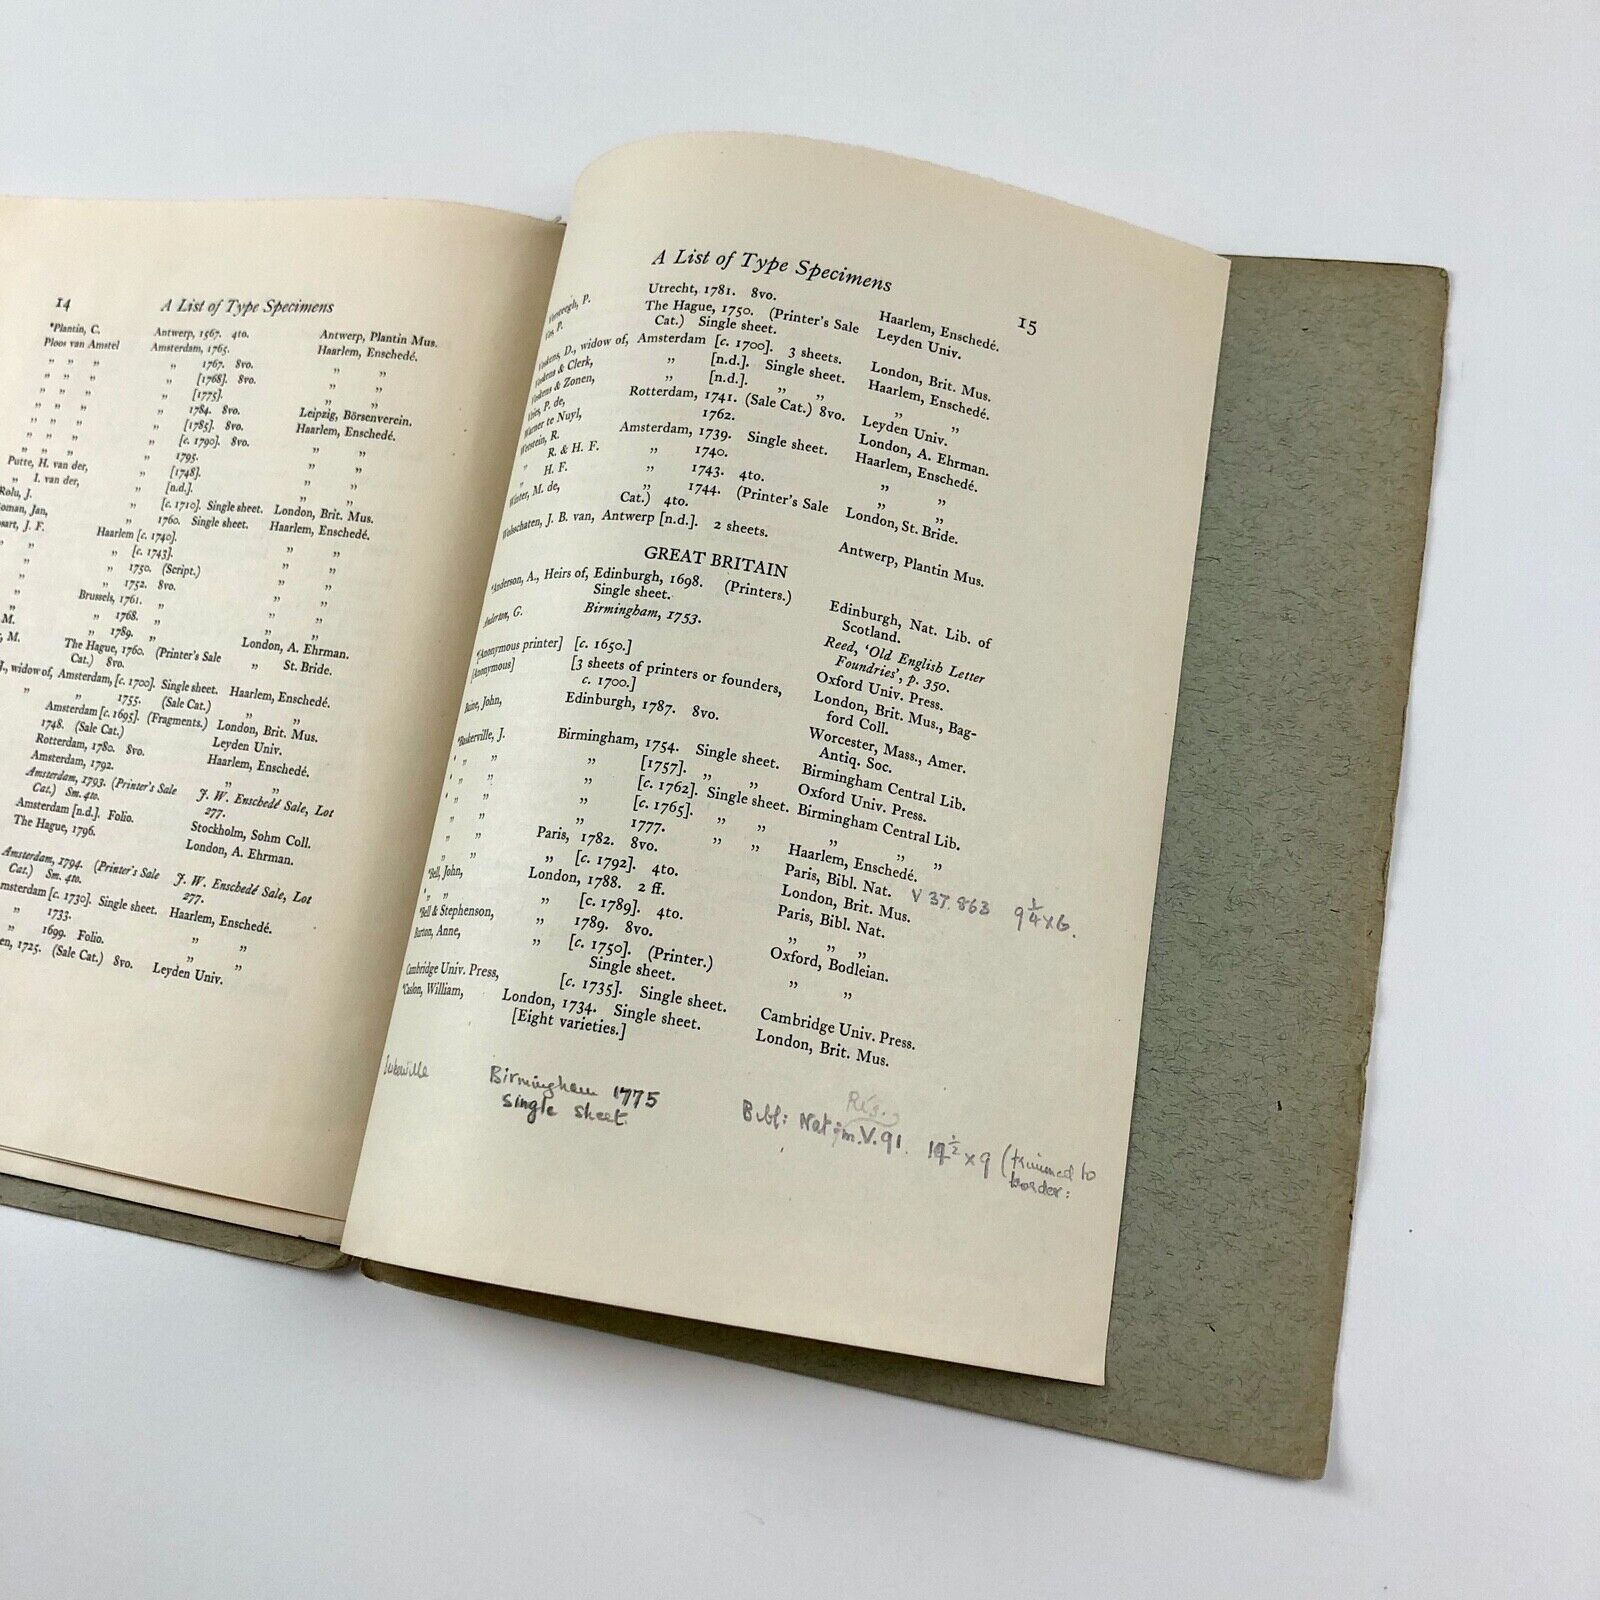 14 A List of Type Specimens
*Plantin, C. Antwerp, 1567. 4to. Antwerp, Plantin Mus.
Ploos van Amstel Amsterdam, 1765. Haarlem, Enschedé.
„ „ „ „ 1767. 8vo. „ „
„ „ „ „ [1768]. 8vo. „ „
„ „ „ „ [1775]. „ „
„ „ „ „ 1784. 8vo. Leipzig, Börsenverein.
„ „ „ „ [1785]. 8vo. Haarlem, Enschedé.
„ „ „ „ [c. 1790]. 8vo. „ „
„ „ „ „ 1795. „ „
Putte, H. van der, „ [1748]. „ „
„ I. van der, „ [n.d.]. „ „
Rolu, J. „ [c. 1710]. Single sheet. London, Brit. Mus.
Roman, Jan, „ 1760. Single sheet. Haarlem, Enschedé.
J. F. Haarlem [c. 1740]. „ „
„ „ „ [c. 1743]. „ „
„ „ „ 1750. (Script.) „ „
„ „ „ 1752. 8vo. „ „
„ Brussels, 1761. „ „ „
M. „ 1768. „ „ „
M. „ 1789. „ London, A. Ehrman.
The Hague, 1760. (Printer's Sale „ St. Bride.
Cat.) 8vo.
J., widow of, Amsterdam, [c. 1700]. Single sheet. Haarlem, Enschedé.
„ „ 1755. (Sale Cat.) „ „
Amsterdam [c. 1695]. (Fragments.) London, Brit. Mus.
1748. (Sale Cat.) Leyden Univ.
Rotterdam, 1780. 8vo. Haarlem, Enschedé.
Amsterdam, 1792. „ „
Amsterdam, 1793. (Printer's Sale J. W. Enschedé Sale, Lot
Cat.) Sm. 4to. 277.
Amsterdam [n.d.]. Folio. Stockholm, Sohm Coll.
The Hague, 1796. London, A. Ehrman.
Amsterdam, 1794. (Printer's Sale J. W. Enschedé Sale, Lot
Cat.) Sm. 4to. 277.
Amsterdam [c. 1730]. Single sheet. Haarlem, Enschedé.
„ 1733. „ „
„ 1699. Folio. „ „
1725. (Sale Cat.) 8vo. Leyden Univ.
A List of Type Specimens 15
Versteegh, P. Utrecht, 1781. 8vo. Haarlem, Enschedé.
Vos, P. The Hague, 1750. (Printer's Sale Leyden Univ.
Cat.) Single sheet.
Voskens, D., widow of, Amsterdam [c. 1700]. 3 sheets. London, Brit. Mus.
Voskens & Clerk, „ [n.d.]. Single sheet. Haarlem, Enschedé.
Voskens & Zonen, „ [n.d.]. „ „ „ „
Vries, P. de, Rotterdam, 1741. (Sale Cat.) 8vo. Leyden Univ.
Warner te Nuyl, 1762. London, A. Ehrman.
Wetstein, R. Amsterdam, 1739. Single sheet. Haarlem, Enschedé.
„ R. & H. F. „ 1740. „ „
„ H. F. „ 1743. 4to. „ „
Winter, M. de, „ 1744. (Printer's Sale London, St. Bride.
Cat.) 4to.
Wolschaten, J. B. van, Antwerp [n.d.]. 2 sheets. Antwerp, Plantin Mus.
GREAT BRITAIN
*Anderson, A., Heirs of, Edinburgh, 1698. (Printers.) Edinburgh, Nat. Lib. of
Single sheet. Scotland.
Anderton, G. Birmingham, 1753. Reed, 'Old English Letter
Foundries', p. 350.
*[Anonymous printer] [c. 1650.] Oxford Univ. Press.
[Anonymous] [3 sheets of printers or founders, London, Brit. Mus., Bag-
c. 1700.] ford Coll.
Baine, John, Edinburgh, 1787. 8vo. Worcester, Mass., Amer.
Antiq. Soc.
*Baskerville, J. Birmingham, 1754. Single sheet. Birmingham Central Lib.
* „ „ „ [1757]. „ „ Oxford Univ. Press.
* „ „ „ [c. 1762]. Single sheet. Birmingham Central Lib.
* „ „ „ [c. 1765]. „ „ „ „ „
„ „ „ 1777. „ „ Haarlem, Enschedé.
„ „ Paris, 1782. 8vo. Paris, Bibl. Nat. V 37.863 9¼×6.
„ „ „ [c. 1792]. 4to. London, Brit. Mus.
*Bell, John, London, 1788. 2 ff. Paris, Bibl. Nat.
* „ „ „ [c. 1789]. 4to. „ „ „
*Bell & Stephenson, „ 1789. 8vo. Oxford, Bodleian.
Burton, Anne, „ [c. 1750]. (Printer.) „ „
Single sheet.
Cambridge Univ. Press, [c. 1735]. Single sheet. Cambridge Univ. Press.
*Caslon, William, London, 1734. Single sheet. London, Brit. Mus.
[Eight varieties.]
Birmingham 1775 Rés.
single sheet. Bibl: Nat: m.V.91. 19½ × 9 (trimmed to
border: